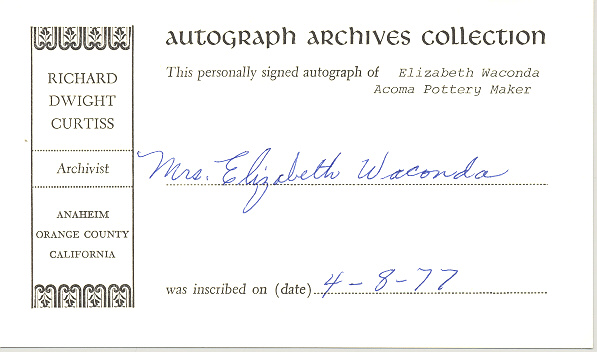 AUTOGRAPH ARCHIVES COLLECTION
This personally signed autograph of Elizabeth Waconda
Acoma Pottery Maker
RICHARD
DWIGHT
CURTISS
Archivist
ANAHEIM
ORANGE COUNTY
CALIFORNIA
Mrs. Elizabeth Waconda
was inscribed on (date) 4-8-77